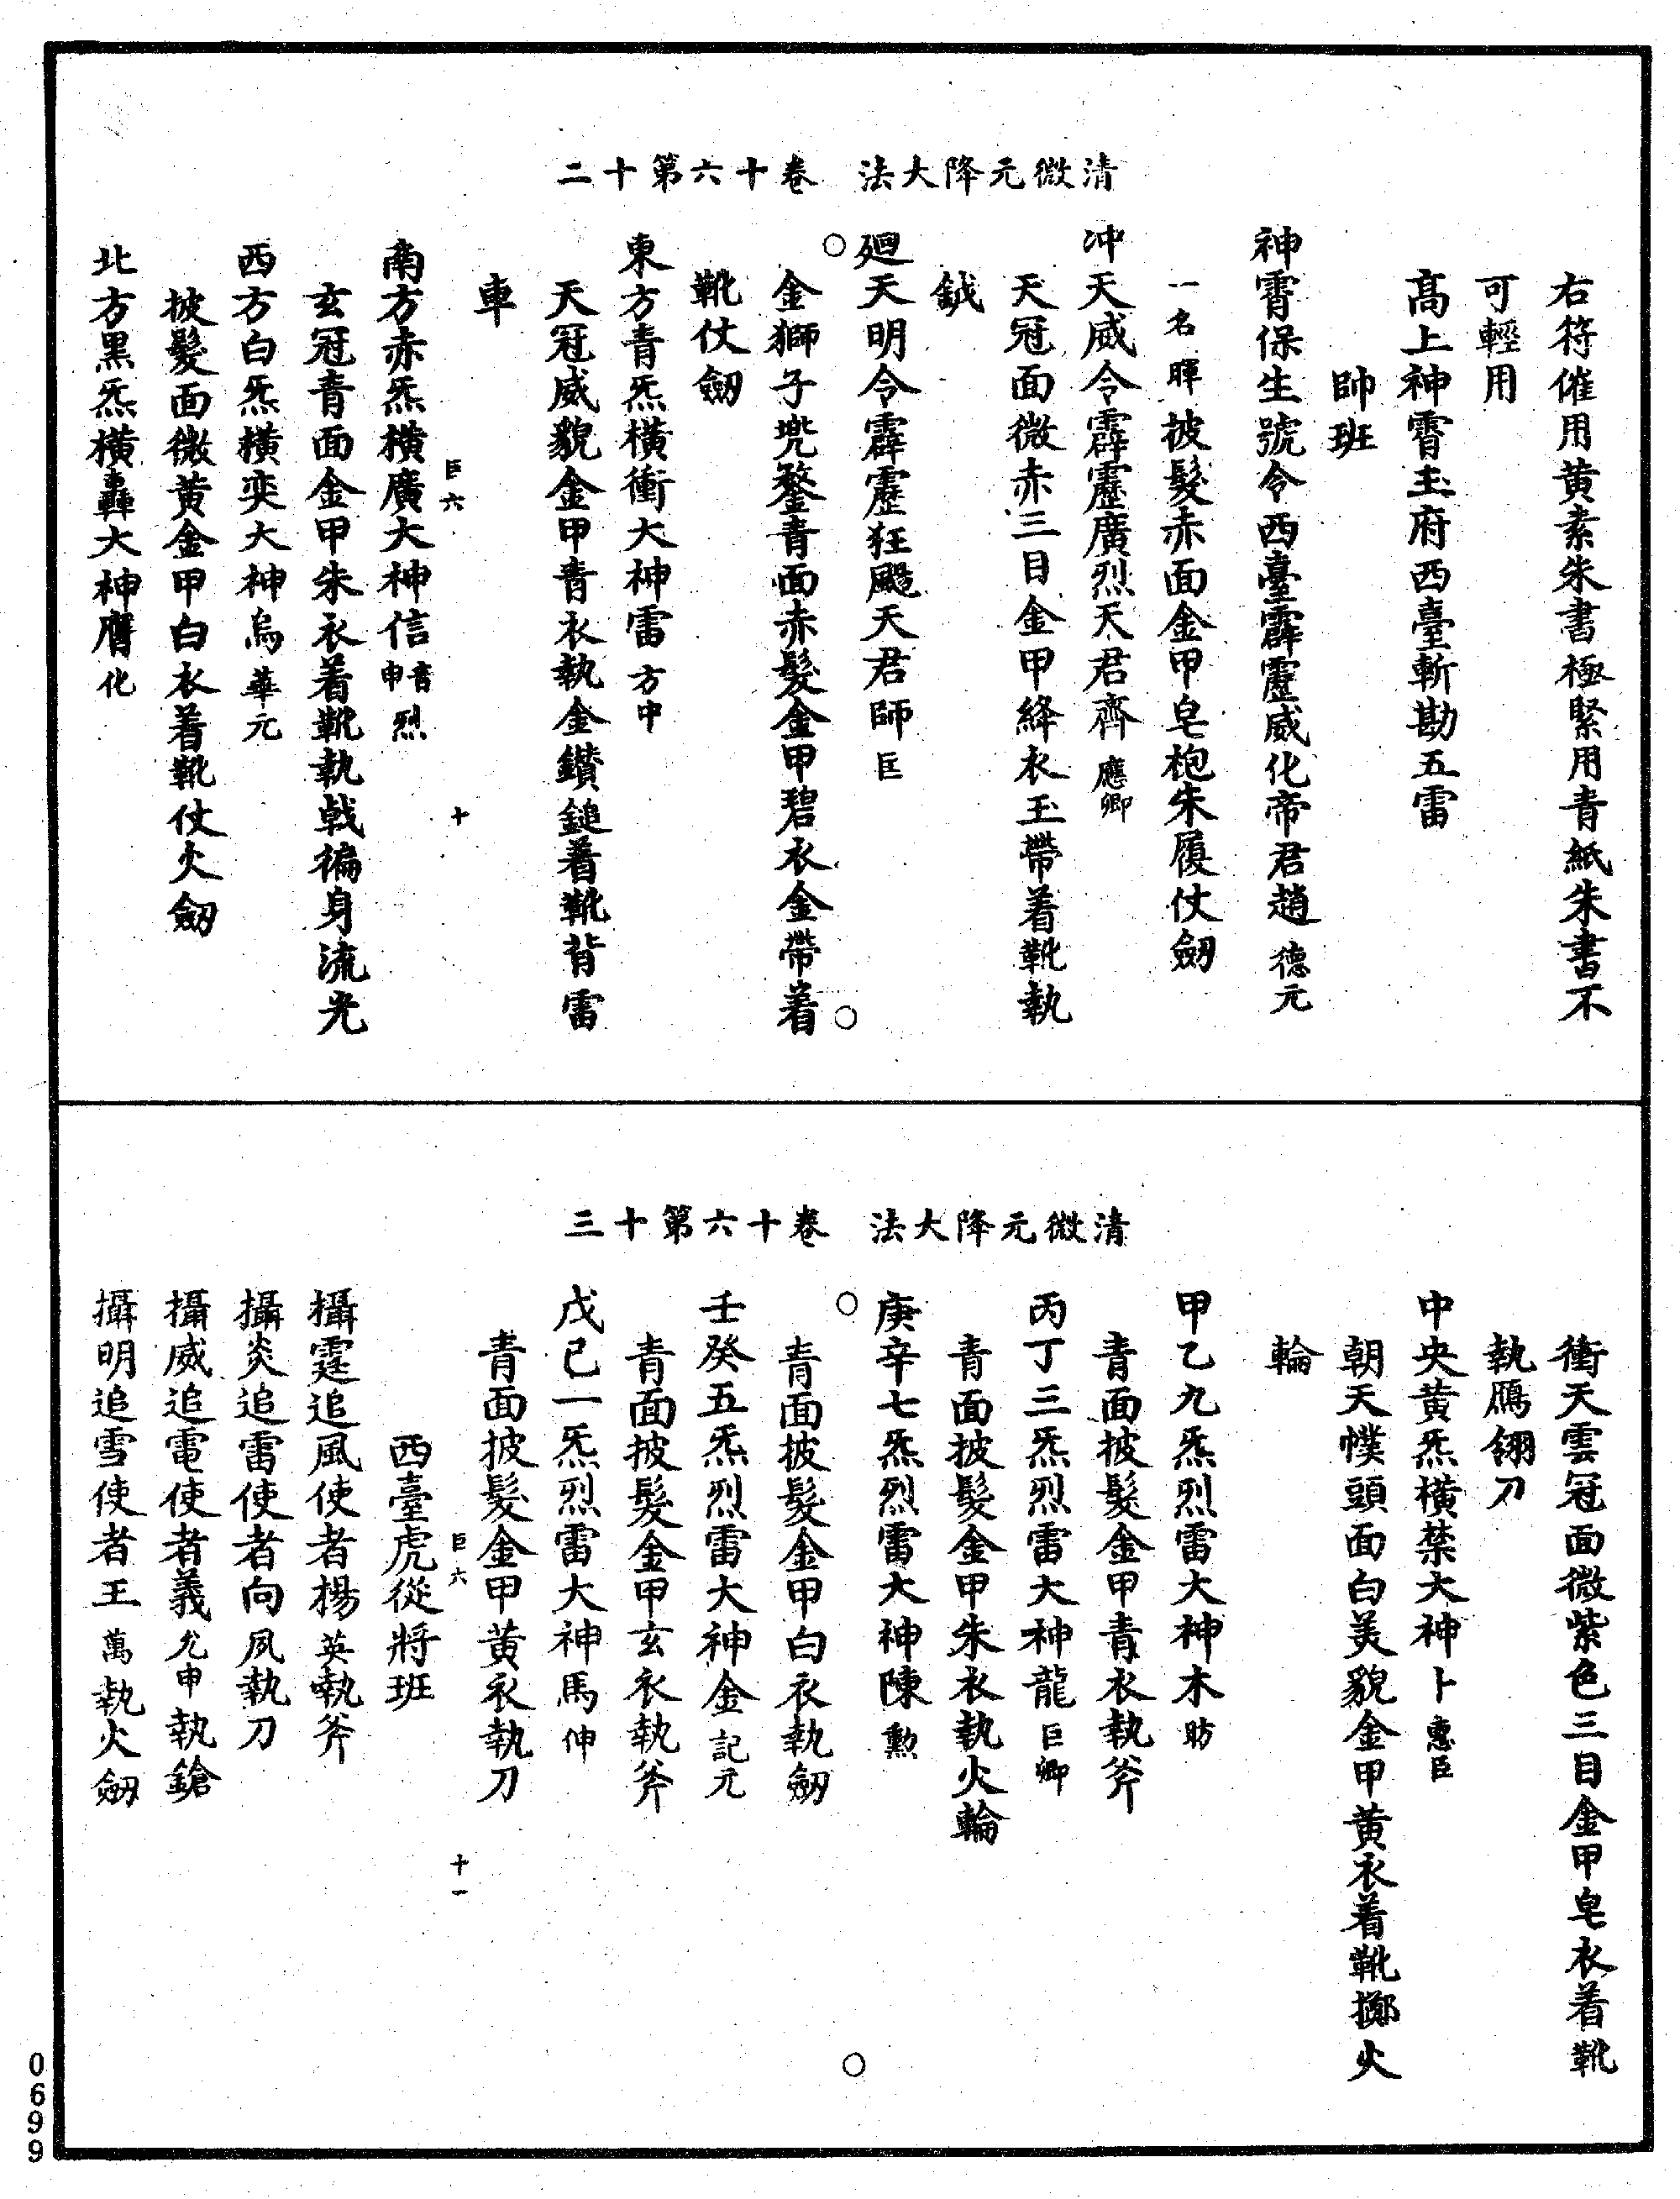 清微元降大法　卷十六第十二
右符催用黄素朱書極緊用青紙朱書不
可輕用
高上神霄玉府西臺斬勘五雷
帥班
神霄保生號令西臺霹靂威化帝君趙德元
一名暉披髮赤面金甲皂袍朱履仗劒
冲天威令霹靂廣烈天君齊應卿
天冠面微赤三目金甲絳衣玉帶着靴執
鉞
廻天明令霹靂狂飈天君師巨
金獅子兠鍪青面赤髮金甲碧衣金帶着
靴仗劒
東方青炁橫衝大神雷方中
天冠威貌金甲青衣執金鑚鎚着靴背雷
車
巨六　十
南方赤炁橫廣大神信音申烈
玄冠青面金甲朱衣着靴執戟徧身流光
西方白炁橫奕大神烏華元
披髮面微黄金甲白衣着靴仗火劒
北方黑炁橫轟大神膺化
清微元降大法　卷十六第十三
衝天雲冠面微紫色三目金甲皂衣着靴
執鴈翎刀
中央黄炁橫禁大神卜惠臣
朝天幞頭面白美貌金甲黄衣着靴擲火
輪
甲乙九炁烈雷大神木昉
青面披髮金甲青衣執斧
丙丁三炁烈雷大神龍巨卿
青面披髮金甲朱衣執火輪
庚辛七炁烈雷大神陳勲
青面披髮金甲白衣執劒
壬癸五炁烈雷大神金記元
青面披髮金甲玄衣執斧
戊己一炁烈雷大神馬伸
青面披髮金甲黄衣執刀
巨六　十一
西臺虎從將班
攝霆追風使者楊英執斧
攝炎追雷使者向夙執刀
攝威追電使者義允申執鎗
攝明追雪使者王萬執火劒
0699